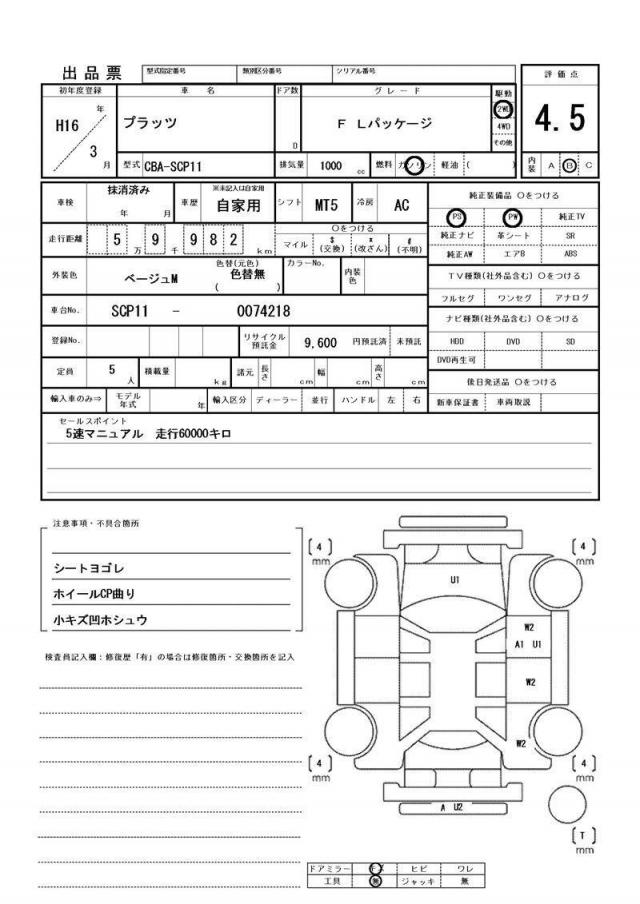 出品票 型式指定番号 類別区分番号 シリアル番号 評価点
初年度登録 車名 ドア数 グレード 駆動
H16 年 プラッツ D F Lパッケージ 2WD 4.5
3 月 4WD
その他
型式 CBA-SCP11 排気量 1000 cc 燃料 ガソリン 軽油 ( ) 内装 A B C
車検 抹消済み 年 月 車歴 ※未記入は自家用 自家用 シフト MT5 冷房 AC 純正装備品 〇をつける
PS PW 純正TV
走行距離 5 万 9 千 9 8 2 km 〇をつける
マイル $ (交換) x (改ざん) # (不明)
純正ナビ 革シート SR
純正AW エアB ABS
外装色 ベージュM 色替(元色) 色替無 ( ) カラーNo. 内装色
TV種類(社外品含む) 〇をつける
フルセグ ワンセグ アナログ
車台No. SCP11 - 0074218
ナビ種類(社外品含む) 〇をつける
登録No. リサイクル預託金 9,600 円預託済 未預託
HDD DVD SD
DVD再生可
定員 5 人 積載量 kg 諸元 長さ cm 幅 cm 高さ cm
後日発送品 〇をつける
輸入車のみ⇒ モデル年式 年 輸入区分 ディーラー 並行 ハンドル 左 右
新車保証書 車両取説
セールスポイント
5速マニュアル 走行60000キロ
注意事項・不具合箇所
シートヨゴレ
ホイールCP曲り
小キズ凹ホシュウ
検査員記入欄:修復歴「有」の場合は修復箇所・交換箇所を記入
[4] mm [4] mm
U1
W2
A1 U1
W2
W2
[4] mm [4] mm
A U2
[T] mm
ドアミラー ヒビ ワレ
工具 無 ジャッキ 無